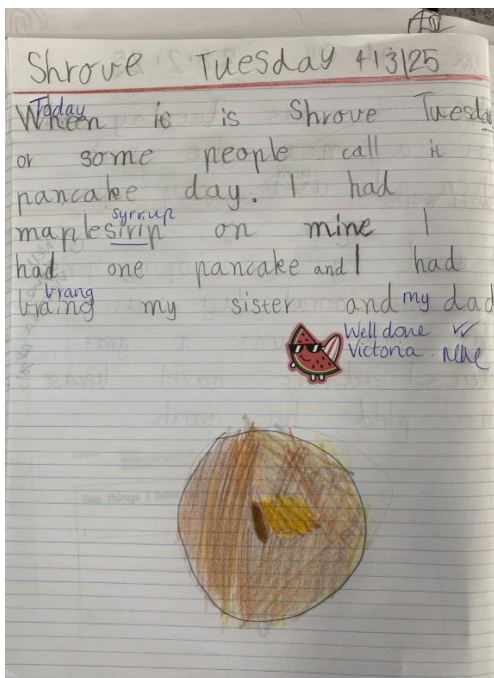 Shrove Tuesday 4/3/25
Today
When it is Shrove Tuesday
or some people call it
pancake day. I had
syrrup
maplesirip on mine I
had one pancake and I had
brang
braing my sister and my dad
Well done ✓
Victoria.
Two things I